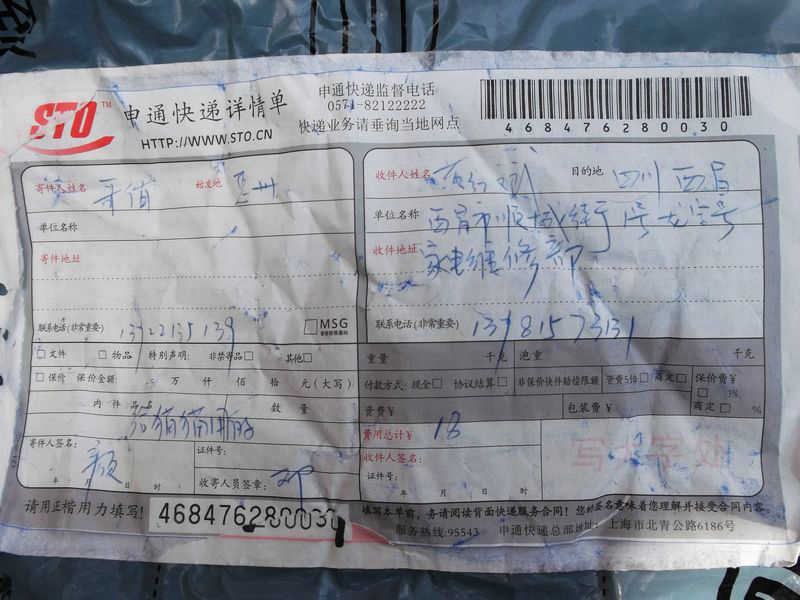 STO™ 申通快递详情单
HTTP://WWW.STO.CN
申通快递监督电话
0571-82122222
快递业务请垂询当地网点
468476280030
寄件人姓名 始发地
单位名称
寄件地址
联系电话(非常重要) 13922135139
MSG
收件人姓名 目的地 四川 西昌
单位名称 西昌市顺城街
收件地址 家电维修部
联系电话(非常重要) 13981573131
文件 物品 特别声明: 非禁寄品 其他
保价 保价金额 万 仟 佰 拾 元(大写)
内件品名 数量
寄件人签名: 证件号:
年 日 时 收寄人员签章:
重量 千克 泡重 千克
付款方式: 现金 协议结算 非保价快件赔偿限额 资费5倍 商定 保价费¥
3%
资费¥ 包装费¥ 商定 %
费用总计¥ 18
收件人签名:
证件号:
年 月 日 时
写大字处
请用正楷用力填写!
468476280030
填写本单前,务请阅读背面快递服务合同!您的签名意味着您理解并接受合同内容
服务热线:95543 申通快递总部地址:上海市北青公路6186号